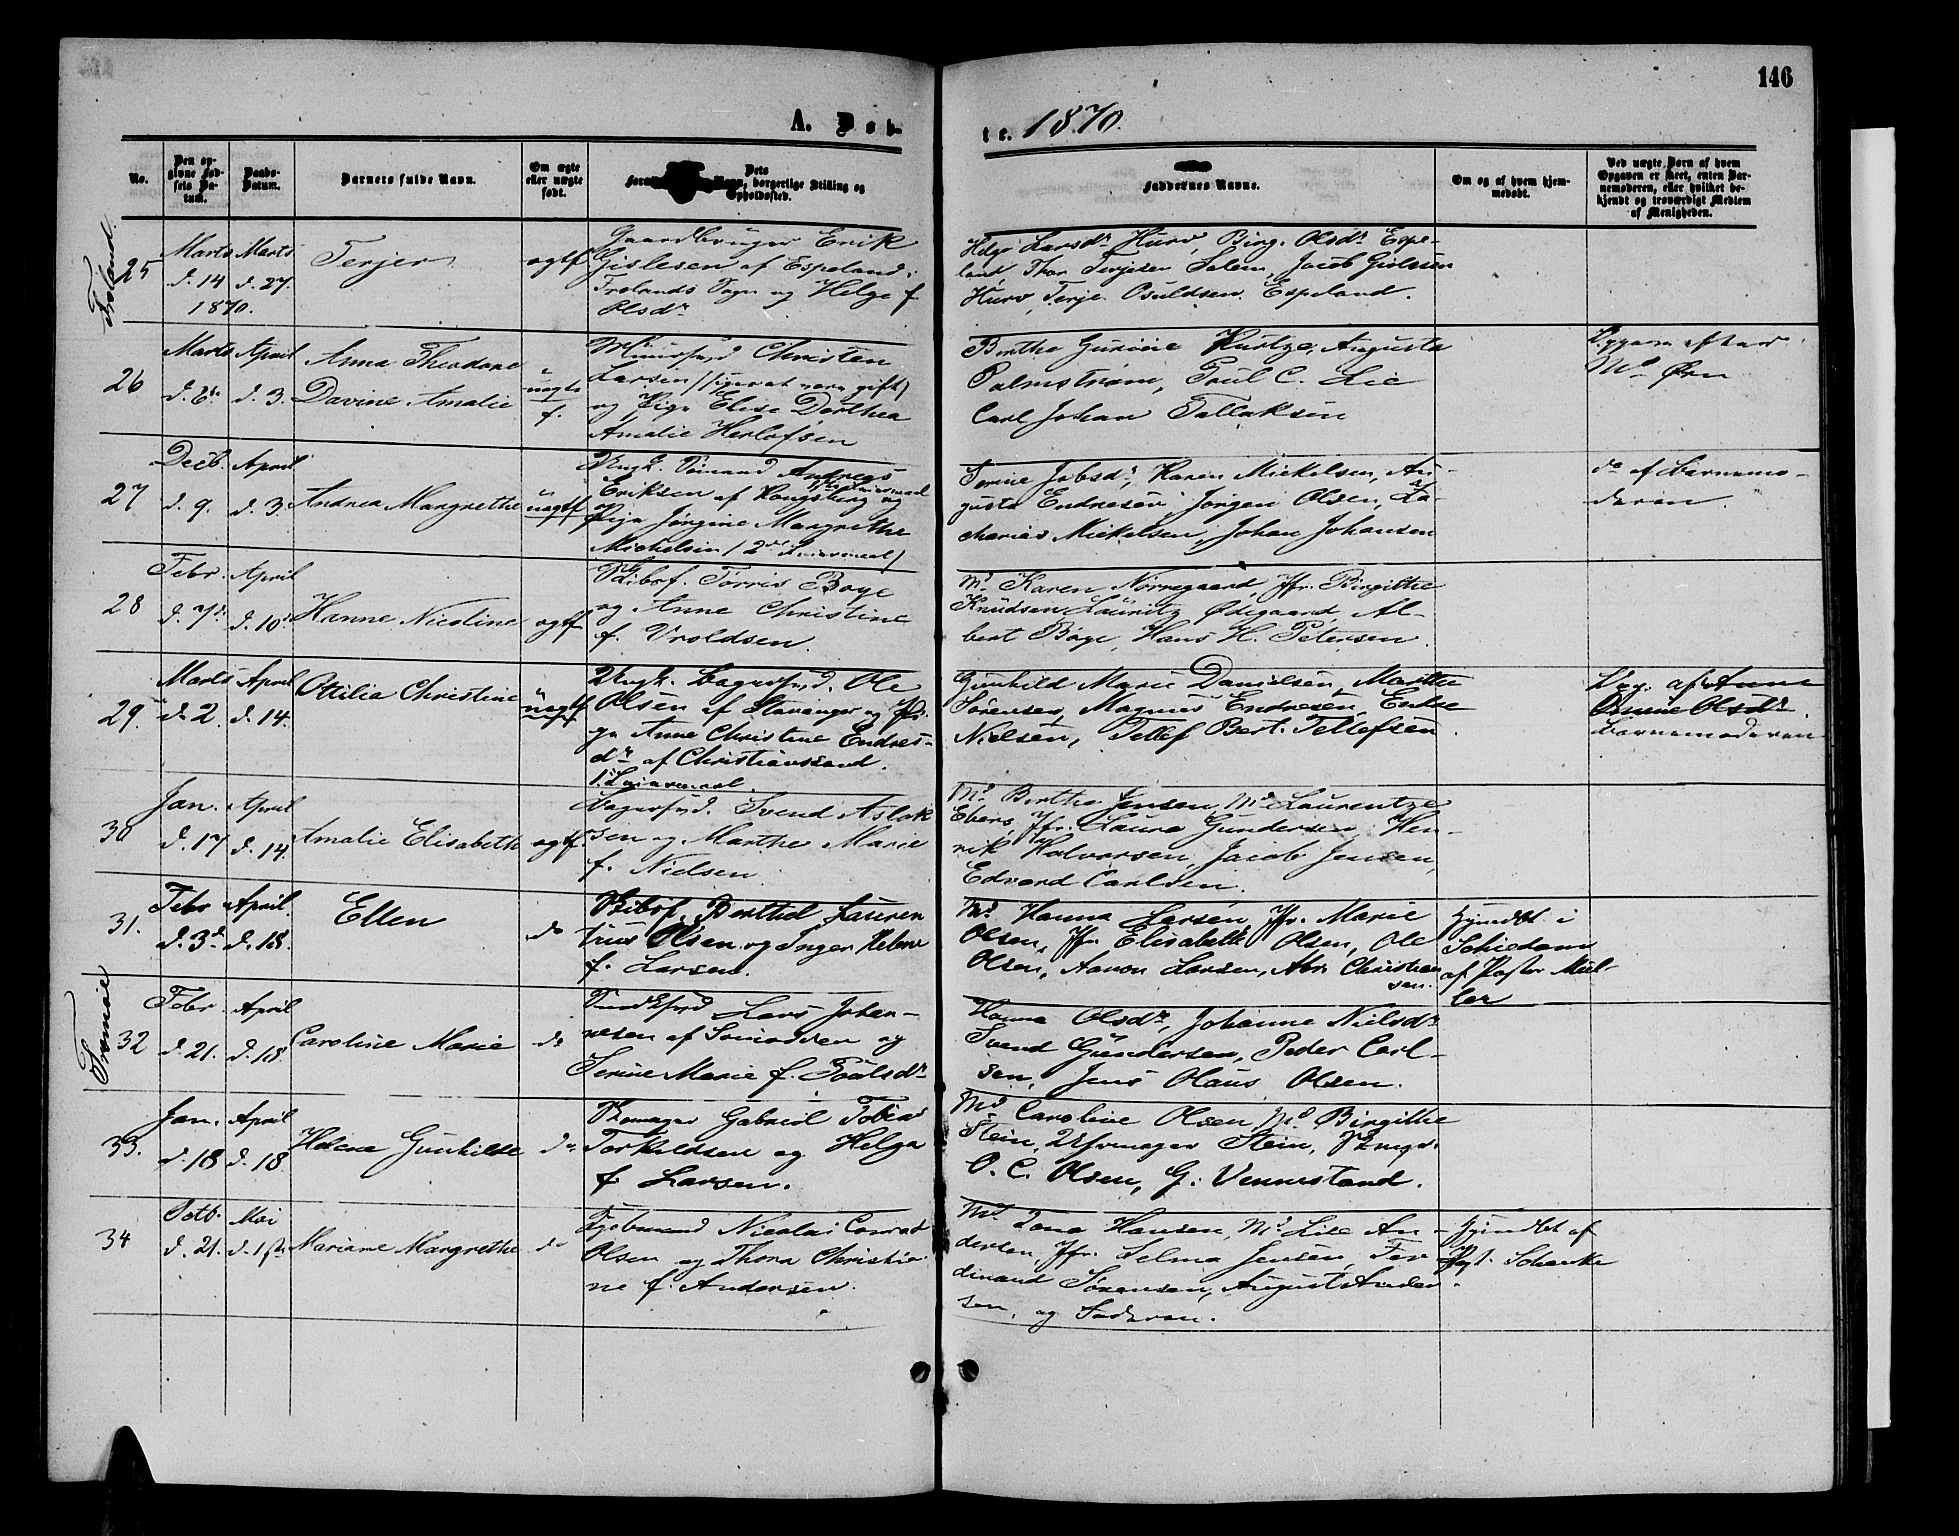 146
A. Døb-
te. 1870.
No.
Den op-
givne Fød-
sels Da-
tum.
Daabs-
Datum.
Barnets fulde Navn.
Om ægte
eller uægte
født.
Dets
Navn, borgerlige Stilling og
Opholdssted.
Faddernes Navne.
Om og af hvem hjem-
medøbt.
Ved uægte Børn af hvem
Opgaven er skeet, enten Bar-
nemoderen, eller hvilket be-
kjendt og troværdigt Medlem
af Menigheden.
Froland.
25
Marts
d. 14
1870.
Marts
d. 27.
Terjer
ægtf
Gaardbruger Erik
Gislesen af Espeland i
Frolands Sogn og Helge f.
Olsdr
Helge Larsdr Hurv, Birg. Olsdr Espe-
land Thor Terjesen Salem, Jacob Gislesen
Hurv, Terje Osuldsen Espeland.
26
Marts
d. 6te
April
d. 3.
Anna Theodore
Davine Amalie
uægte
f.
Muursvd Christen
Larsen (siger at være gift)
og Pige Elise Dorthea
Amalie Herlofsen
Berthe Gurine Kurtze, Augusta
Palmstrøm, Poul C. Lie
Carl Johan Tallaksen
Opgave efter
Md Ørn
27
Decb.
d. 9.
April
d. 3.
Andrea Margrethe
uægtf
Ungk. Sømand Andreas
Eriksen af Kongsberg og
Pige Jørgine Margrethe
Michelsen (2det Leiermaal)
Terine Jobsdr, Karen Mickelsen, Au-
gusta Endresen, Jørgen Olsen, Za-
charias Mickelsen, Johan Johansen
do af Barnemo-
deren.
28
Febr.
d. 7d.
April
d. 10d
Hanne Nicoline
ægtf
Skibsf. Torris Boye
og Anne Christine
f. Uroldsen.
Md Karen Nørregaard, Jfr. Birgitte
Knudsen Lauritz Ødegaard, Al-
bert Boye, Hans H. Petersen.
29.
Marts
d. 2.
April
d. 14.
Ottilia Christine
uægtf
Ungk. Bagersvd. Ole
Olsen af Stavanger og Pi-
ge Anne Christine Endres-
dr af Christianssand.
1. Leiermaal.
Gunhild Marie Danielsen, Marthe
Sørensen, Magnus Endresen, Enke
Nielsen, Tellef Bert. Tellefsen.
Opg. af Anne
Olsdr
Barnemoderen
30
Jan.
d. 17
April
d. 14.
Amalie Elisabeth
ægtf
Bagersvd. Svend Aslak
sen og Marthe Marie
f. Nielsen
Md. Berthe Jensen, Md Laurentze
Ebers, Jfr. Laura Gundersen, Hen-
rik Halvorsen, Jacob Jensen,
Edvard Carlsen.
31.
Febr
d. 3d
April.
d. 18.
Ellen
do
Skibsf. Berthel Lauren
tius Olsen og Inger Helene
f. Larsen.
Md Hanna Larsen, Jfr. Marie
Olsen, Jfr Elisabeth Olsen, Ole
Olsen, Aanon Larsen, Abr. Christian
sen.
Hjemdbt i
Schiedam
af Pastor Mül-
ler
Tromøe
32
Febr.
d. 21.
April
d. 18
Caroline Marie
do
Lars Johan-
nesen af Songodden og
Terine Marie f. Poulsdr
Hanna Olsdr, Johanne Nielsdr
Svend Gundersen, Peder Carl-
sen, Jens Olaus Olsen.
33.
Jan.
d. 18
April
d. 18
Helene Gunhilde
do
Skomager Gabriel Tobias
Torkildsen og Helga
f. Larsen.
Md Caroline Olsen, Md Birgithe
Stein, Uhrmager Stein,
O. C. Olsen, G. Vennestand.
34
Sptb.
d. 21.
Mai
d. 1ste
Mariane Margrethe
do
Tydsmand Nicolai Conrad
Olsen og Thora Christia-
ne f. Andersen.
Md. Lena Hansen, Md Lise An-
dersen, Jfr. Selma Jensen, Fer-
dinand Sørensen, August Ander-
sen, og Faderen.
Hjemdbt af
Pst. Schanke